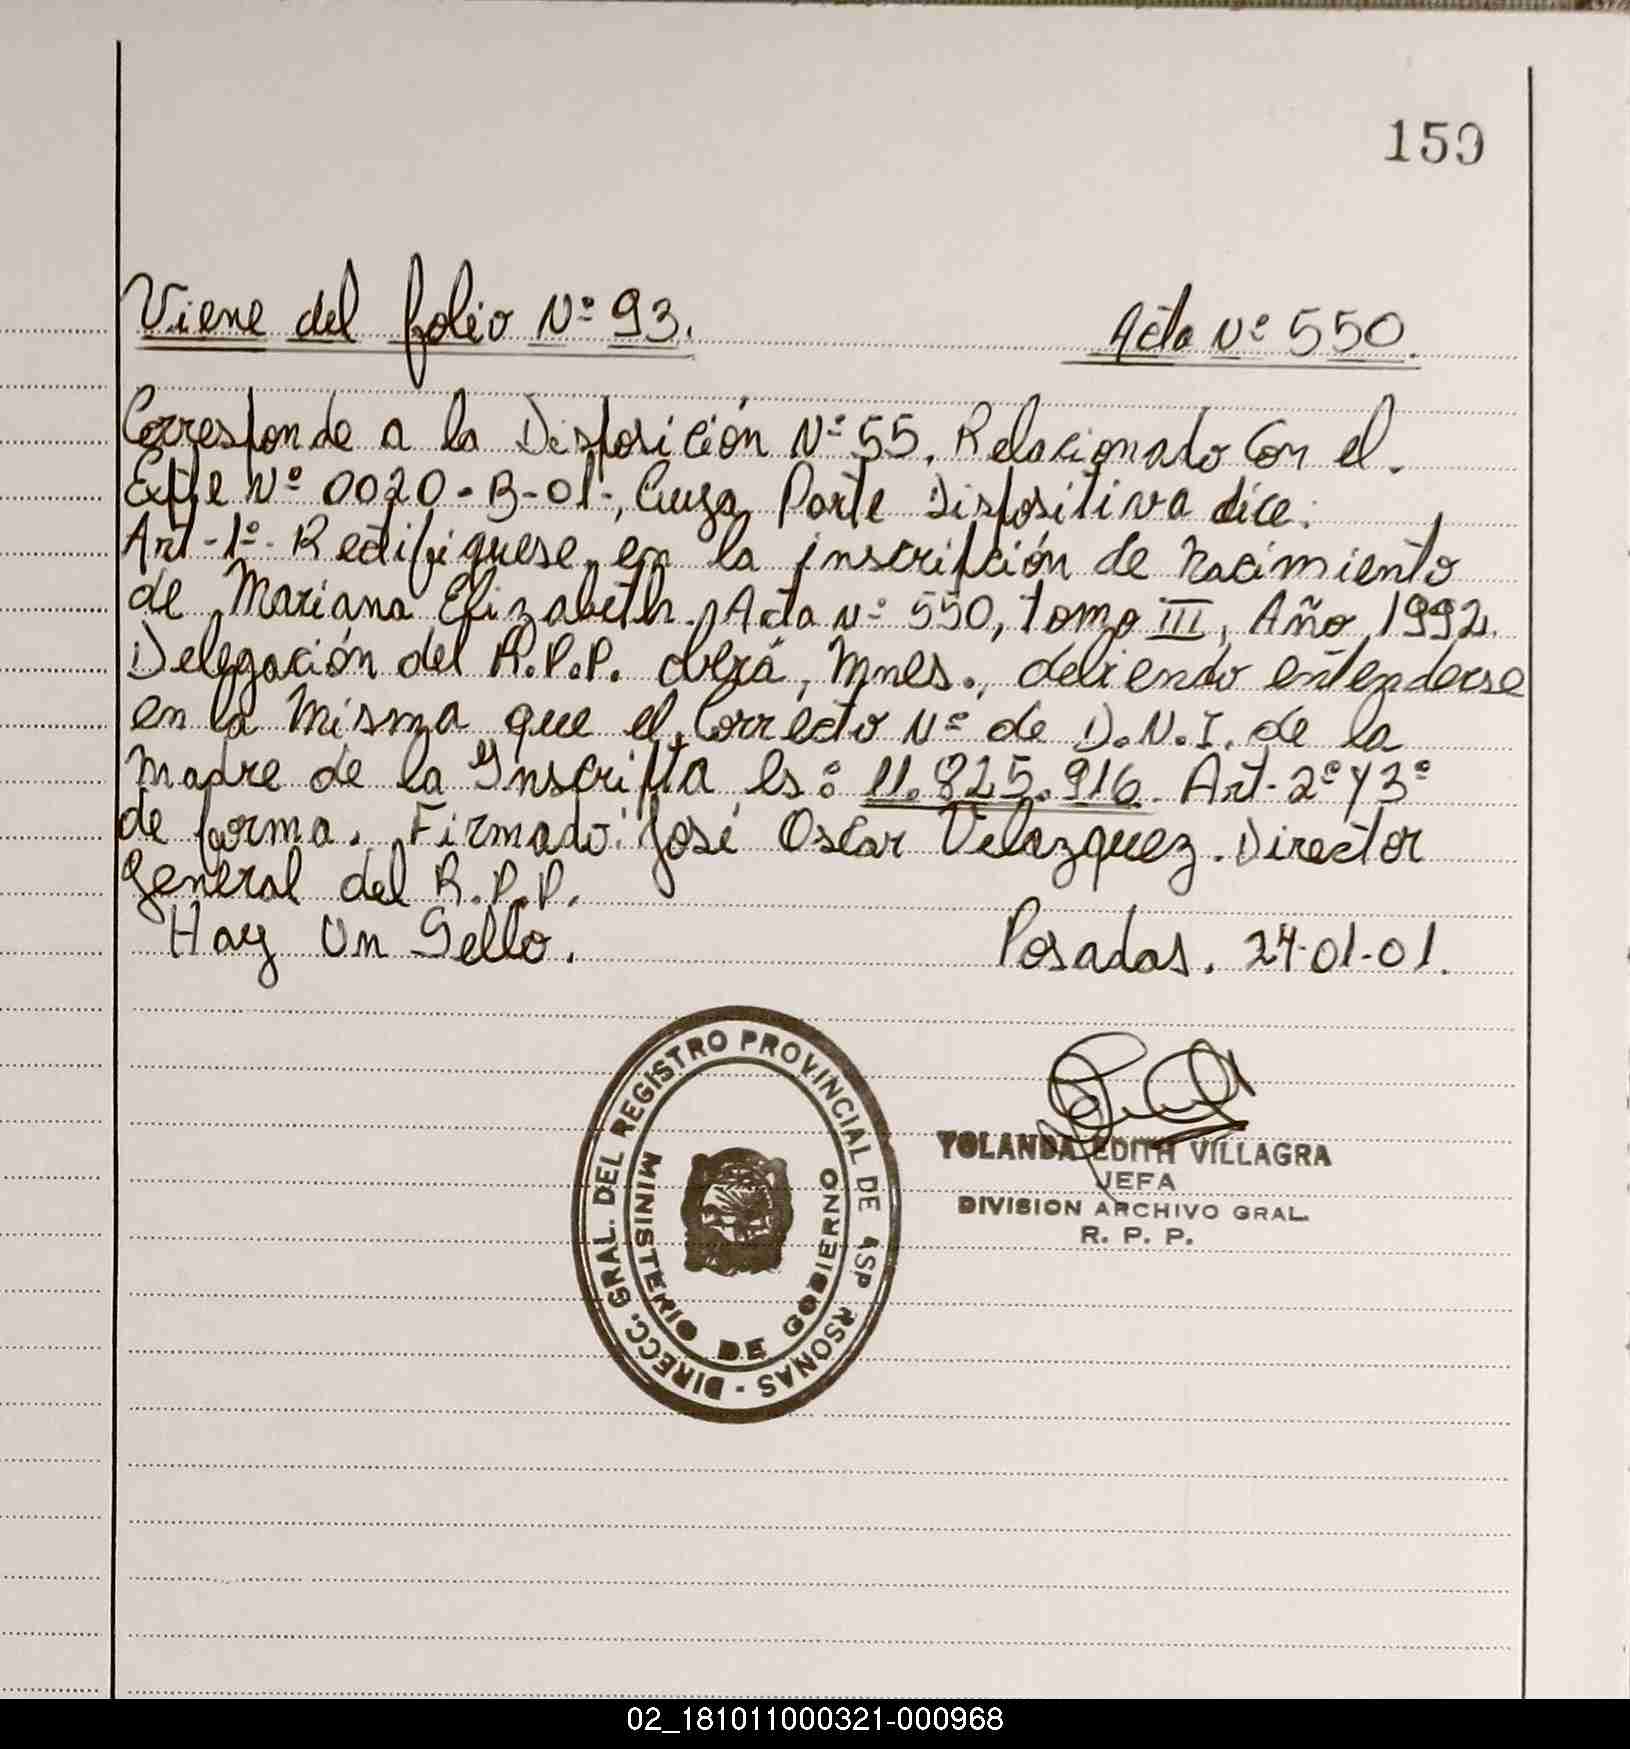 159
Viene del folio Nº 93. Acta Nº 550.
Corresponde a la Disposición Nº 55. Relacionado Con el.
Expte Nº 0020-B-01-, Cuya Parte Dispositiva dice:
Art-1º- Rectifíquese en la inscripción de nacimiento
de Mariana Elizabeth. Acta Nº 550, tomo III, Año 1992.
Delegación del R.P.P. Oberá, Mnes., debiendo entenderse
en la misma que el Correcto Nº de D.N.I. de la
Madre de la Inscripta es: 11.825.916. Art-2º y 3º
de forma. Firmado: José Oscar Velazquez. Director
General del R.P.P.
Hay Un Sello. Posadas. 24-01-01.
DIRECC. GRAL. DEL REGISTRO PROVINCIAL DE LAS PERSONAS -
MINISTERIO DE GOBIERNO
YOLANDA EDITH VILLAGRA
JEFA
DIVISION ARCHIVO GRAL.
R. P. P.
02_181011000321-000968